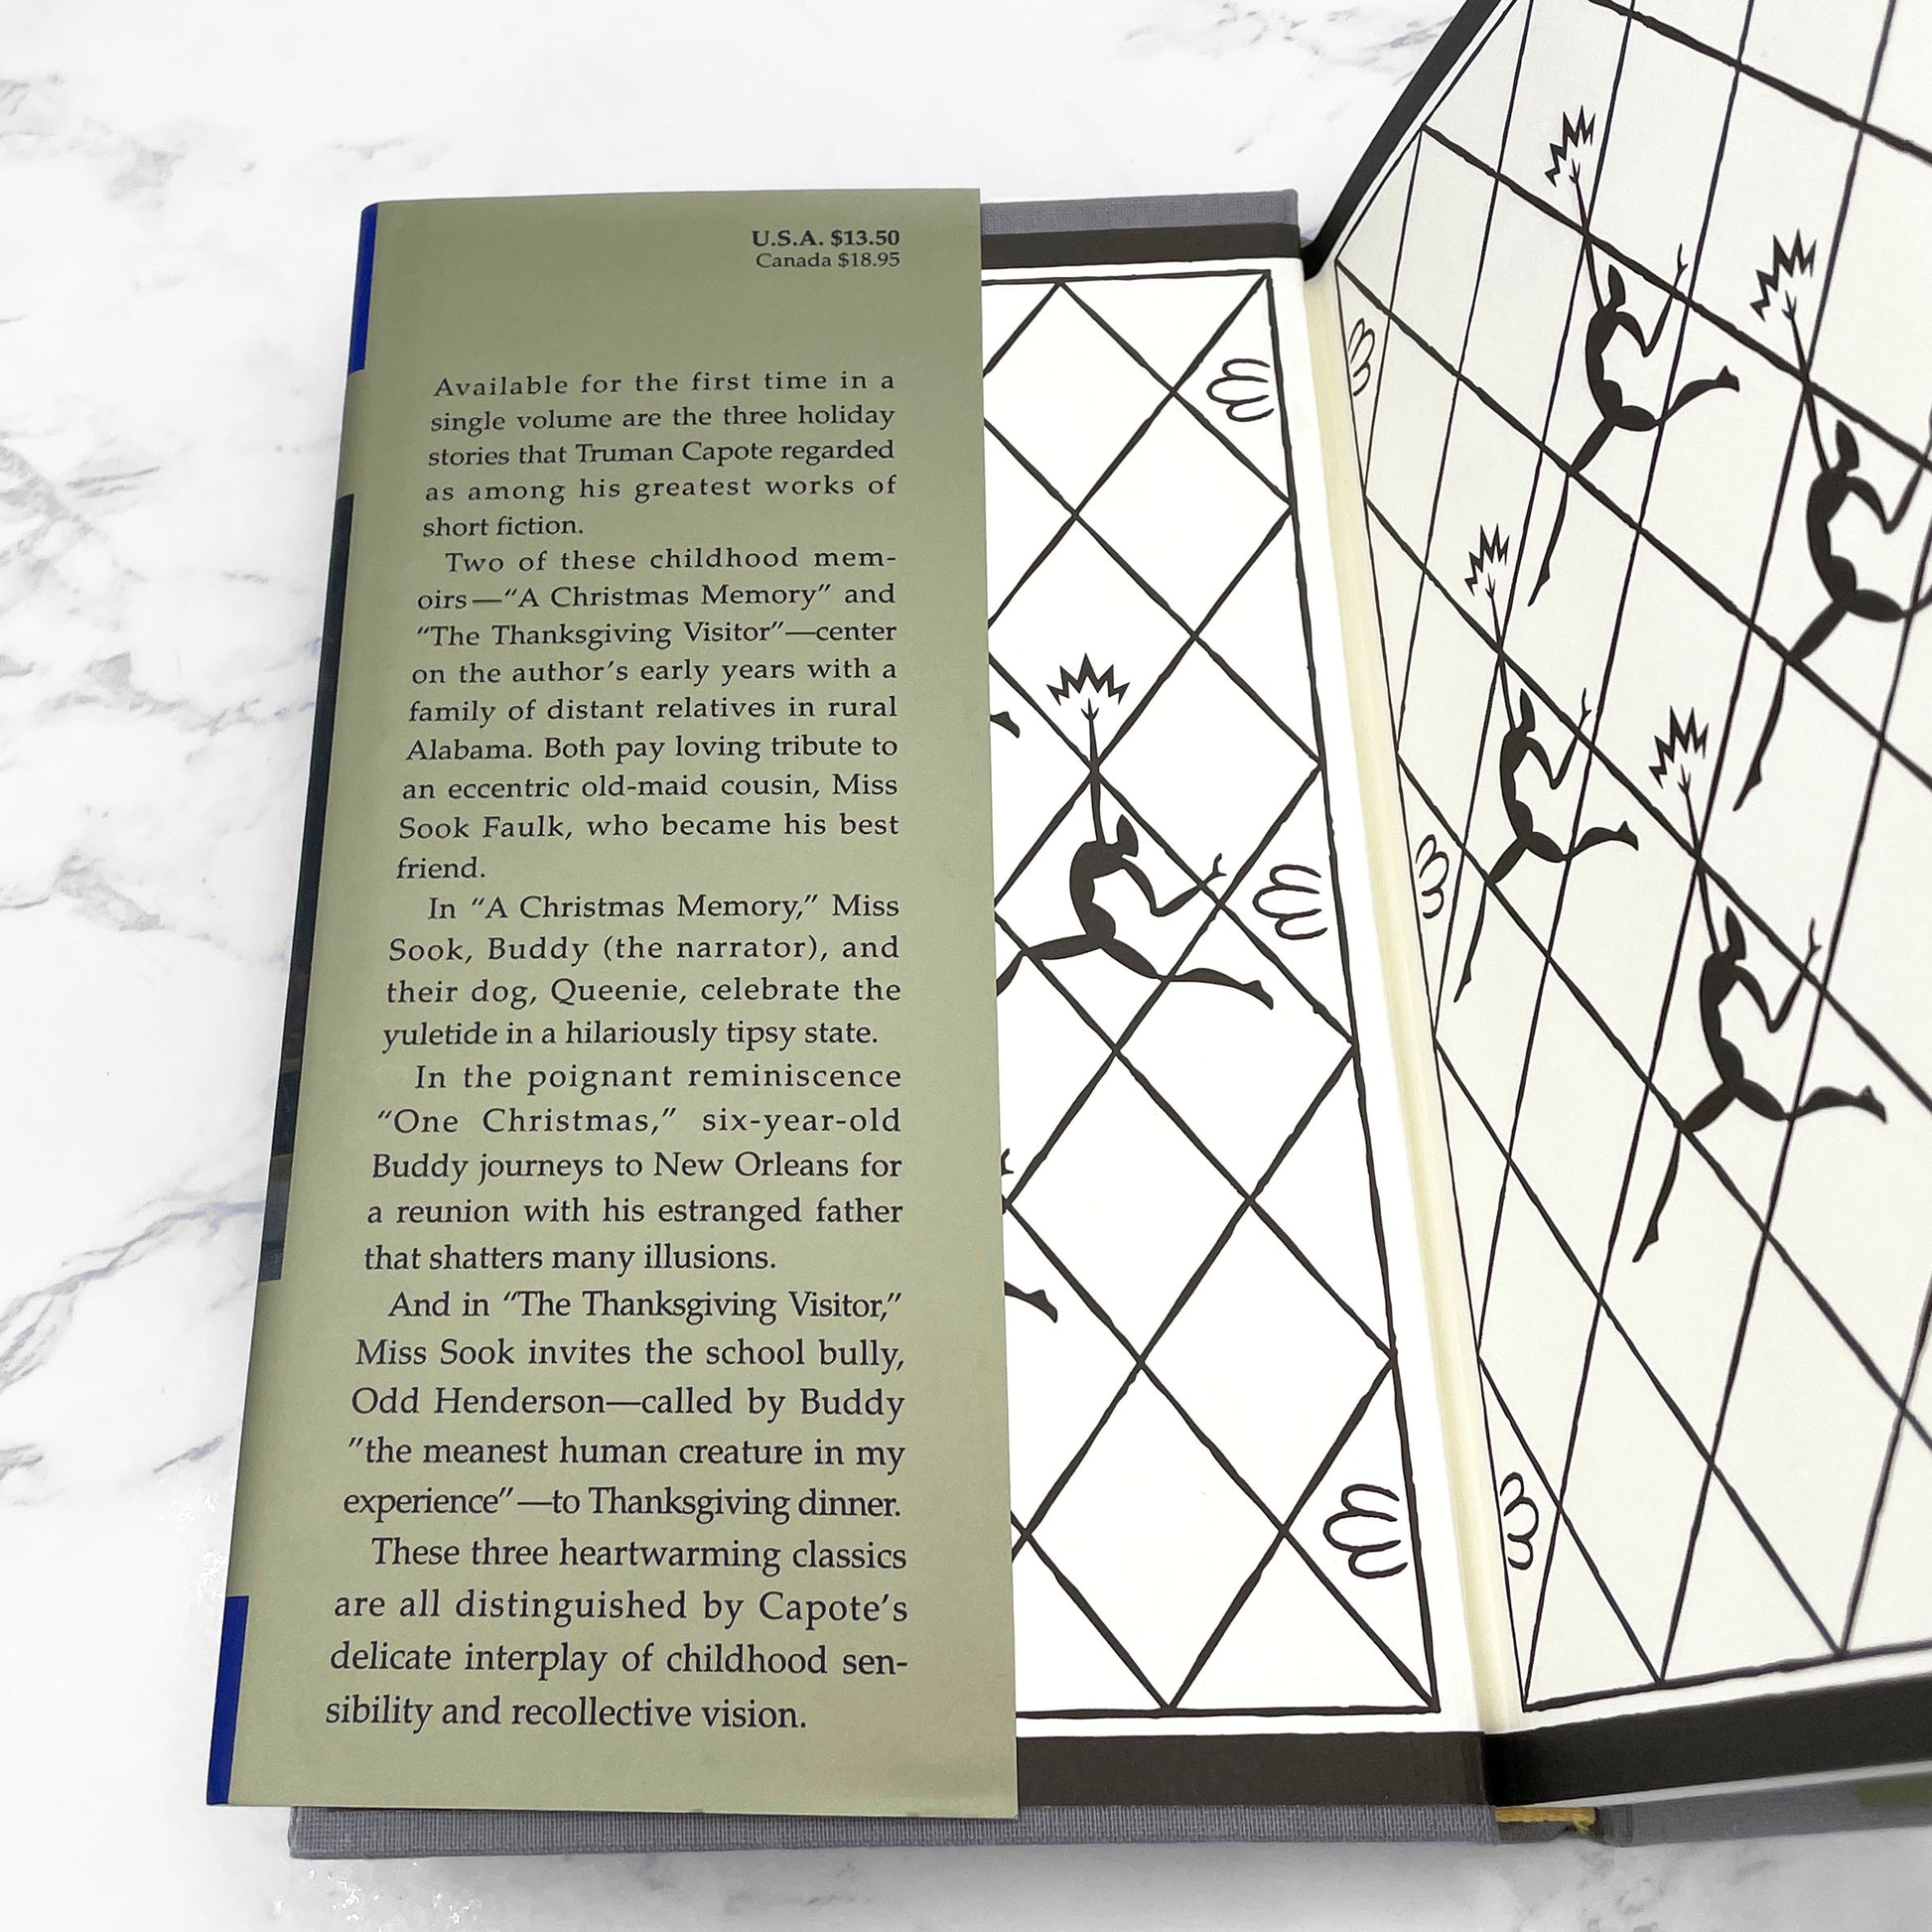 U.S.A. $13.50
Canada $18.95
Available for the first time in a
single volume are the three holiday
stories that Truman Capote regarded
as among his greatest works of
short fiction.
Two of these childhood mem-
oirs—“A Christmas Memory” and
“The Thanksgiving Visitor”—center
on the author’s early years with a
family of distant relatives in rural
Alabama. Both pay loving tribute to
an eccentric old-maid cousin, Miss
Sook Faulk, who became his best
friend.
In “A Christmas Memory,” Miss
Sook, Buddy (the narrator), and
their dog, Queenie, celebrate the
yuletide in a hilariously tipsy state.
In the poignant reminiscence
“One Christmas,” six-year-old
Buddy journeys to New Orleans for
a reunion with his estranged father
that shatters many illusions.
And in “The Thanksgiving Visitor,”
Miss Sook invites the school bully,
Odd Henderson—called by Buddy
”the meanest human creature in my
experience”—to Thanksgiving dinner.
These three heartwarming classics
are all distinguished by Capote’s
delicate interplay of childhood sen-
sibility and recollective vision.